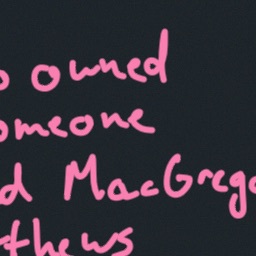 o owned
omeone
d MacGrego
thews